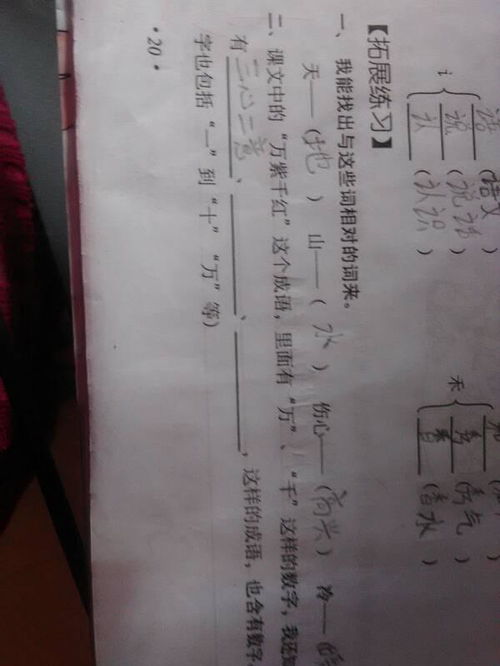 讠 语 (语文)
说 (说话)
认 (认识)
禾
秀 (秀气)
香 (香水)
【拓展练习】
一、我能找出与这些词相对的词来。
天——(地) 山——(水) 伤心——(高兴) 冷——(
二、课文中的“万紫千红”这个成语,里面有“万”、“千”这样的数字,我还
有三心二意、、,这样的成语,也含有数字。
字也包括“一”到“十”“万”等)
·20·